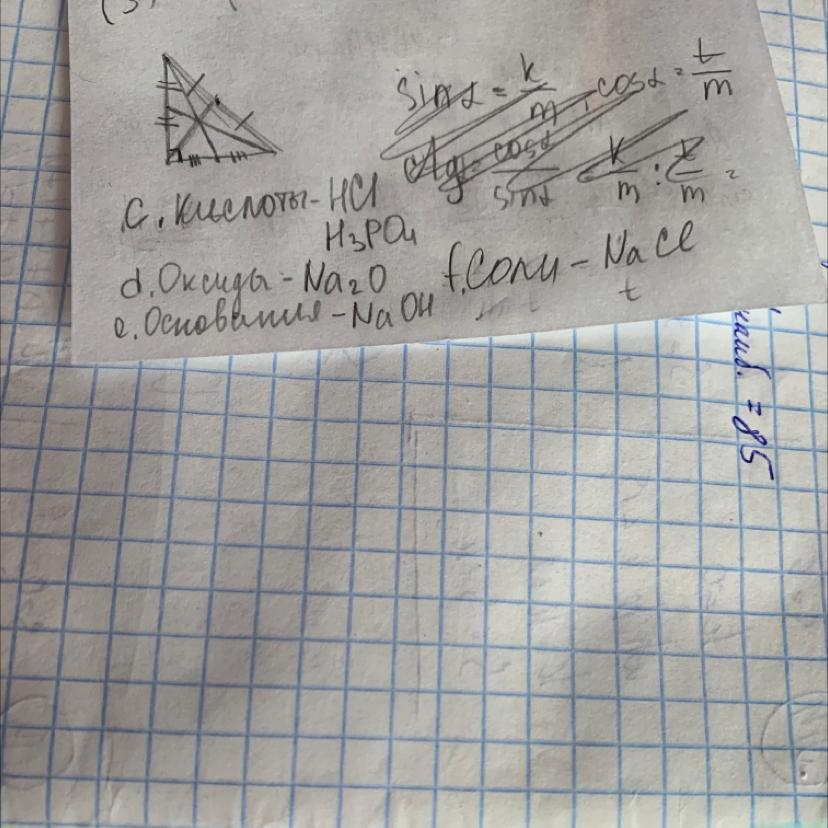 (3
sin α = k/m, cos α = t/m
ctg = cos α/sin α k/m : t/m =
c. Кислоты - HCl
H₃PO₄
d. Оксиды - Na₂O
f. Соли - NaCl
t
e. Основания - NaOH
наиб. = 85